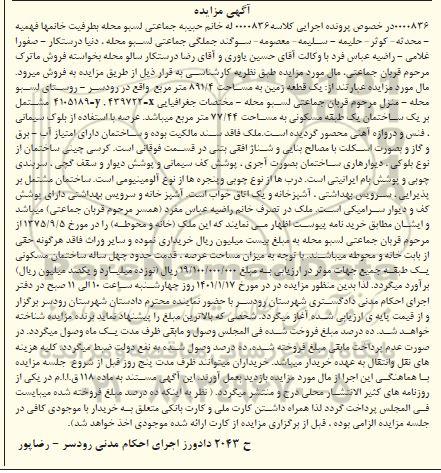 آگهی مزایده
۰۰۰۰۸۳۶در خصوص پرونده اجرایی کلاسه۰۰۰۰۸۳۶ له خانم حبیبه جماعتی لسبو محله بطرفیت خانمها فهمیه
- محدثه - کوثر - حلیمه - سلیمه - معصومه - سوگند جملگی جماعتی لسبو محله ، دنیا درستکار - صفورا
غلامی - راضیه عباس فرد با وکالت آقای حسین یاوری و آقای رضا درستکار سالو محله بخواسته فروش ماترک
مرحوم قربان جماعتی، مال مورد مزایده طبق نظریه کارشناسی به قرار ذیل از طریق مزایده به فروش میرود.
مال مورد مزایده عبارتند از: یک قطعه زمین به مساحت ۸۹۱/۴ متر مربع واقع در رودسر - روستای لسبو
محله - منزل مرحوم قربان جماعتی لسبو محله - مختصات جغرافیایی ۴۳۹۷۲۲=x ، ۴۱۰۵۱۸۹=y مشتمل
بر یک ساختمان یک طبقه مسکونی به مساحت ۷۷/۴۴ متر مربع میباشد. عرصه با استفاده از بلوک سیمانی
، فنس و دروازه آهنی محصور گردیده است.ملک فاقد سند مالکیت بوده و ساختمان دارای امتیاز آب - برق
و گاز و بصورت اسکلت با مصالح بنایی و شناژ افقی بتنی در قسمت فوقانی است. کرسی چینی ساختمان از
نوع بلوکی ، دیوارهای ساختمان بصورت آجری ، پوشش کف سیمانی و پوشش دیوار و سقف گچی ، سربندی
چوبی و پوشش بام ایرانیتی است. درب ها از نوع چوبی و پنجره ها از نوع آلومینیومی است. ساختمان مشتمل بر
پذیرایی ، سرویس بهداشتی ، آشپزخانه و یک اتاق خواب است. آشپز خانه و سرویس بهداشتی دارای پوشش
کف و دیوار سرامیکی است. ملک در تصرف خانم راضیه عباس مفرد (همسر مرحوم قربان جماعتی) میباشد
و ایشان مطابق خرید نامه پیوست اظهار می نمایند که این ملک (خانه و محوطه) را در مورخ ۱۳۷۵/۹/۵ از
مرحوم قربان جماعتی لسبو محله به مبلغ بیست میلیون ریال خریداری نموده و سایر وراث فاقد هرگونه حقی
از بابت خانه و محوطه میباشند. با توجه به میزان مساحت عرصه ، قدمت حدود چهل ساله ساختمان مسکونی
یک طبقه جمیع جهات موثر در ارزیابی به مبلغ ۱۹/۱۰۰/۰۰۰/۰۰۰ ریال (نوزده میلیارد و یکصد میلیون ریال)
برآورد میگردد. لذا بدین منظور مزایده در در مورخ ۱۴۰۱/۱/۱۷ روز چهارشنبه ساعت ۱۰ الی ۱۱ صبح در دفتر
اجرای احکام مدنی دادگستری شهرستان رودسر با حضور نماینده محترم دادستان شهرستان رودسر برگزار
و از قیمت پایه ی ارزیابی شده آغاز میگردد. شخصی که بالاترین مبلغ را پیشنهاد نماید برنده مزایده شناخته
خواهد شد. ده درصد مبلغ فروخت شده فی المجلس وصول و مابقی ظرف مدت یک ماه وصول میگردد. در
صورت عدم پرداخت مابقی مبلغ فروخته شده، ده درصد وصول شده به نفع دولت ضبط میگردد. کلیه هزینه
های نقل وانتقال به عهده خریدار میباشد. خریداران میتوانند ظرف مدت پنج روز قبل از شروع جلسه مزایده
با هماهنگی این اجرا از مال مورد مزایده بازدید بعمل آورند. این آگهی مستند به ماده ۱۱۸ ق.ا.ا.م در یکی از
روزنامه های کثیر الانتشار محلی درج و منتشر میگردد. ( نظر به اینکه ده درصد مبلغ فروخته شده میبایست
فی المجلس پرداخت گردد لذا همراه داشتن کارت ملی و کارت بانکی متعلق به خریدار با موجودی کافی در
جلسه مزایده الزامی بوده ، قبل از برگزاری مزایده از کارت ارائه شده موجودی اخذ خواهد شد).
ح ۲۰۴۳ دادورز اجرای احکام مدنی رودسر - رضاپور